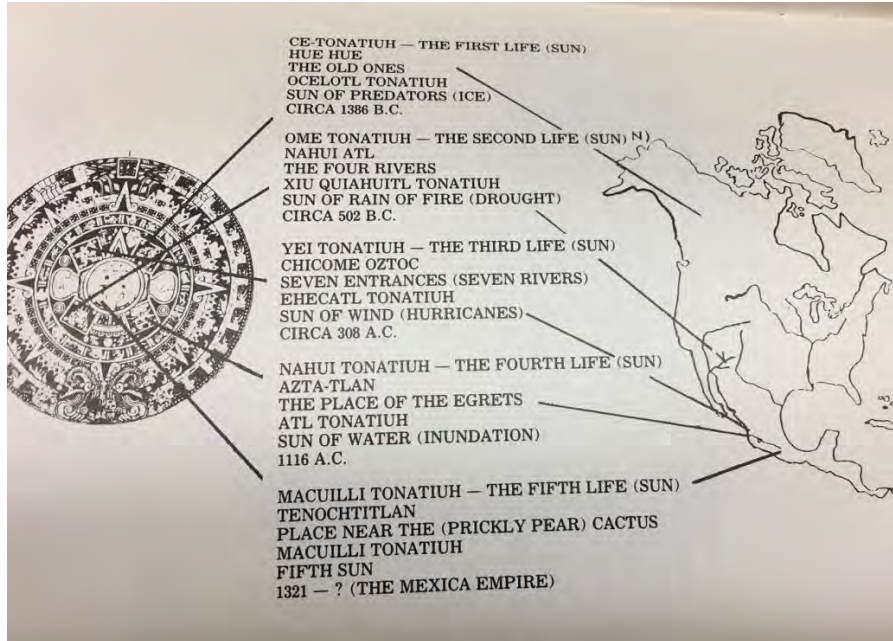 CE-TONATIUH — THE FIRST LIFE (SUN)
HUE HUE
THE OLD ONES
OCELOTL TONATIUH
SUN OF PREDATORS (ICE)
CIRCA 1386 B.C.
OME TONATIUH — THE SECOND LIFE (SUN) N)
NAHUI ATL
THE FOUR RIVERS
XIU QUIAHUITL TONATIUH
SUN OF RAIN OF FIRE (DROUGHT)
CIRCA 502 B.C.
YEI TONATIUH — THE THIRD LIFE (SUN)
CHICOME OZTOC
SEVEN ENTRANCES (SEVEN RIVERS)
EHECATL TONATIUH
SUN OF WIND (HURRICANES)
CIRCA 308 A.C.
NAHUI TONATIUH — THE FOURTH LIFE (SUN)
AZTA-TLAN
THE PLACE OF THE EGRETS
ATL TONATIUH
SUN OF WATER (INUNDATION)
1116 A.C.
MACUILLI TONATIUH — THE FIFTH LIFE (SUN)
TENOCHTITLAN
PLACE NEAR THE (PRICKLY PEAR) CACTUS
MACUILLI TONATIUH
FIFTH SUN
1321 — ? (THE MEXICA EMPIRE)